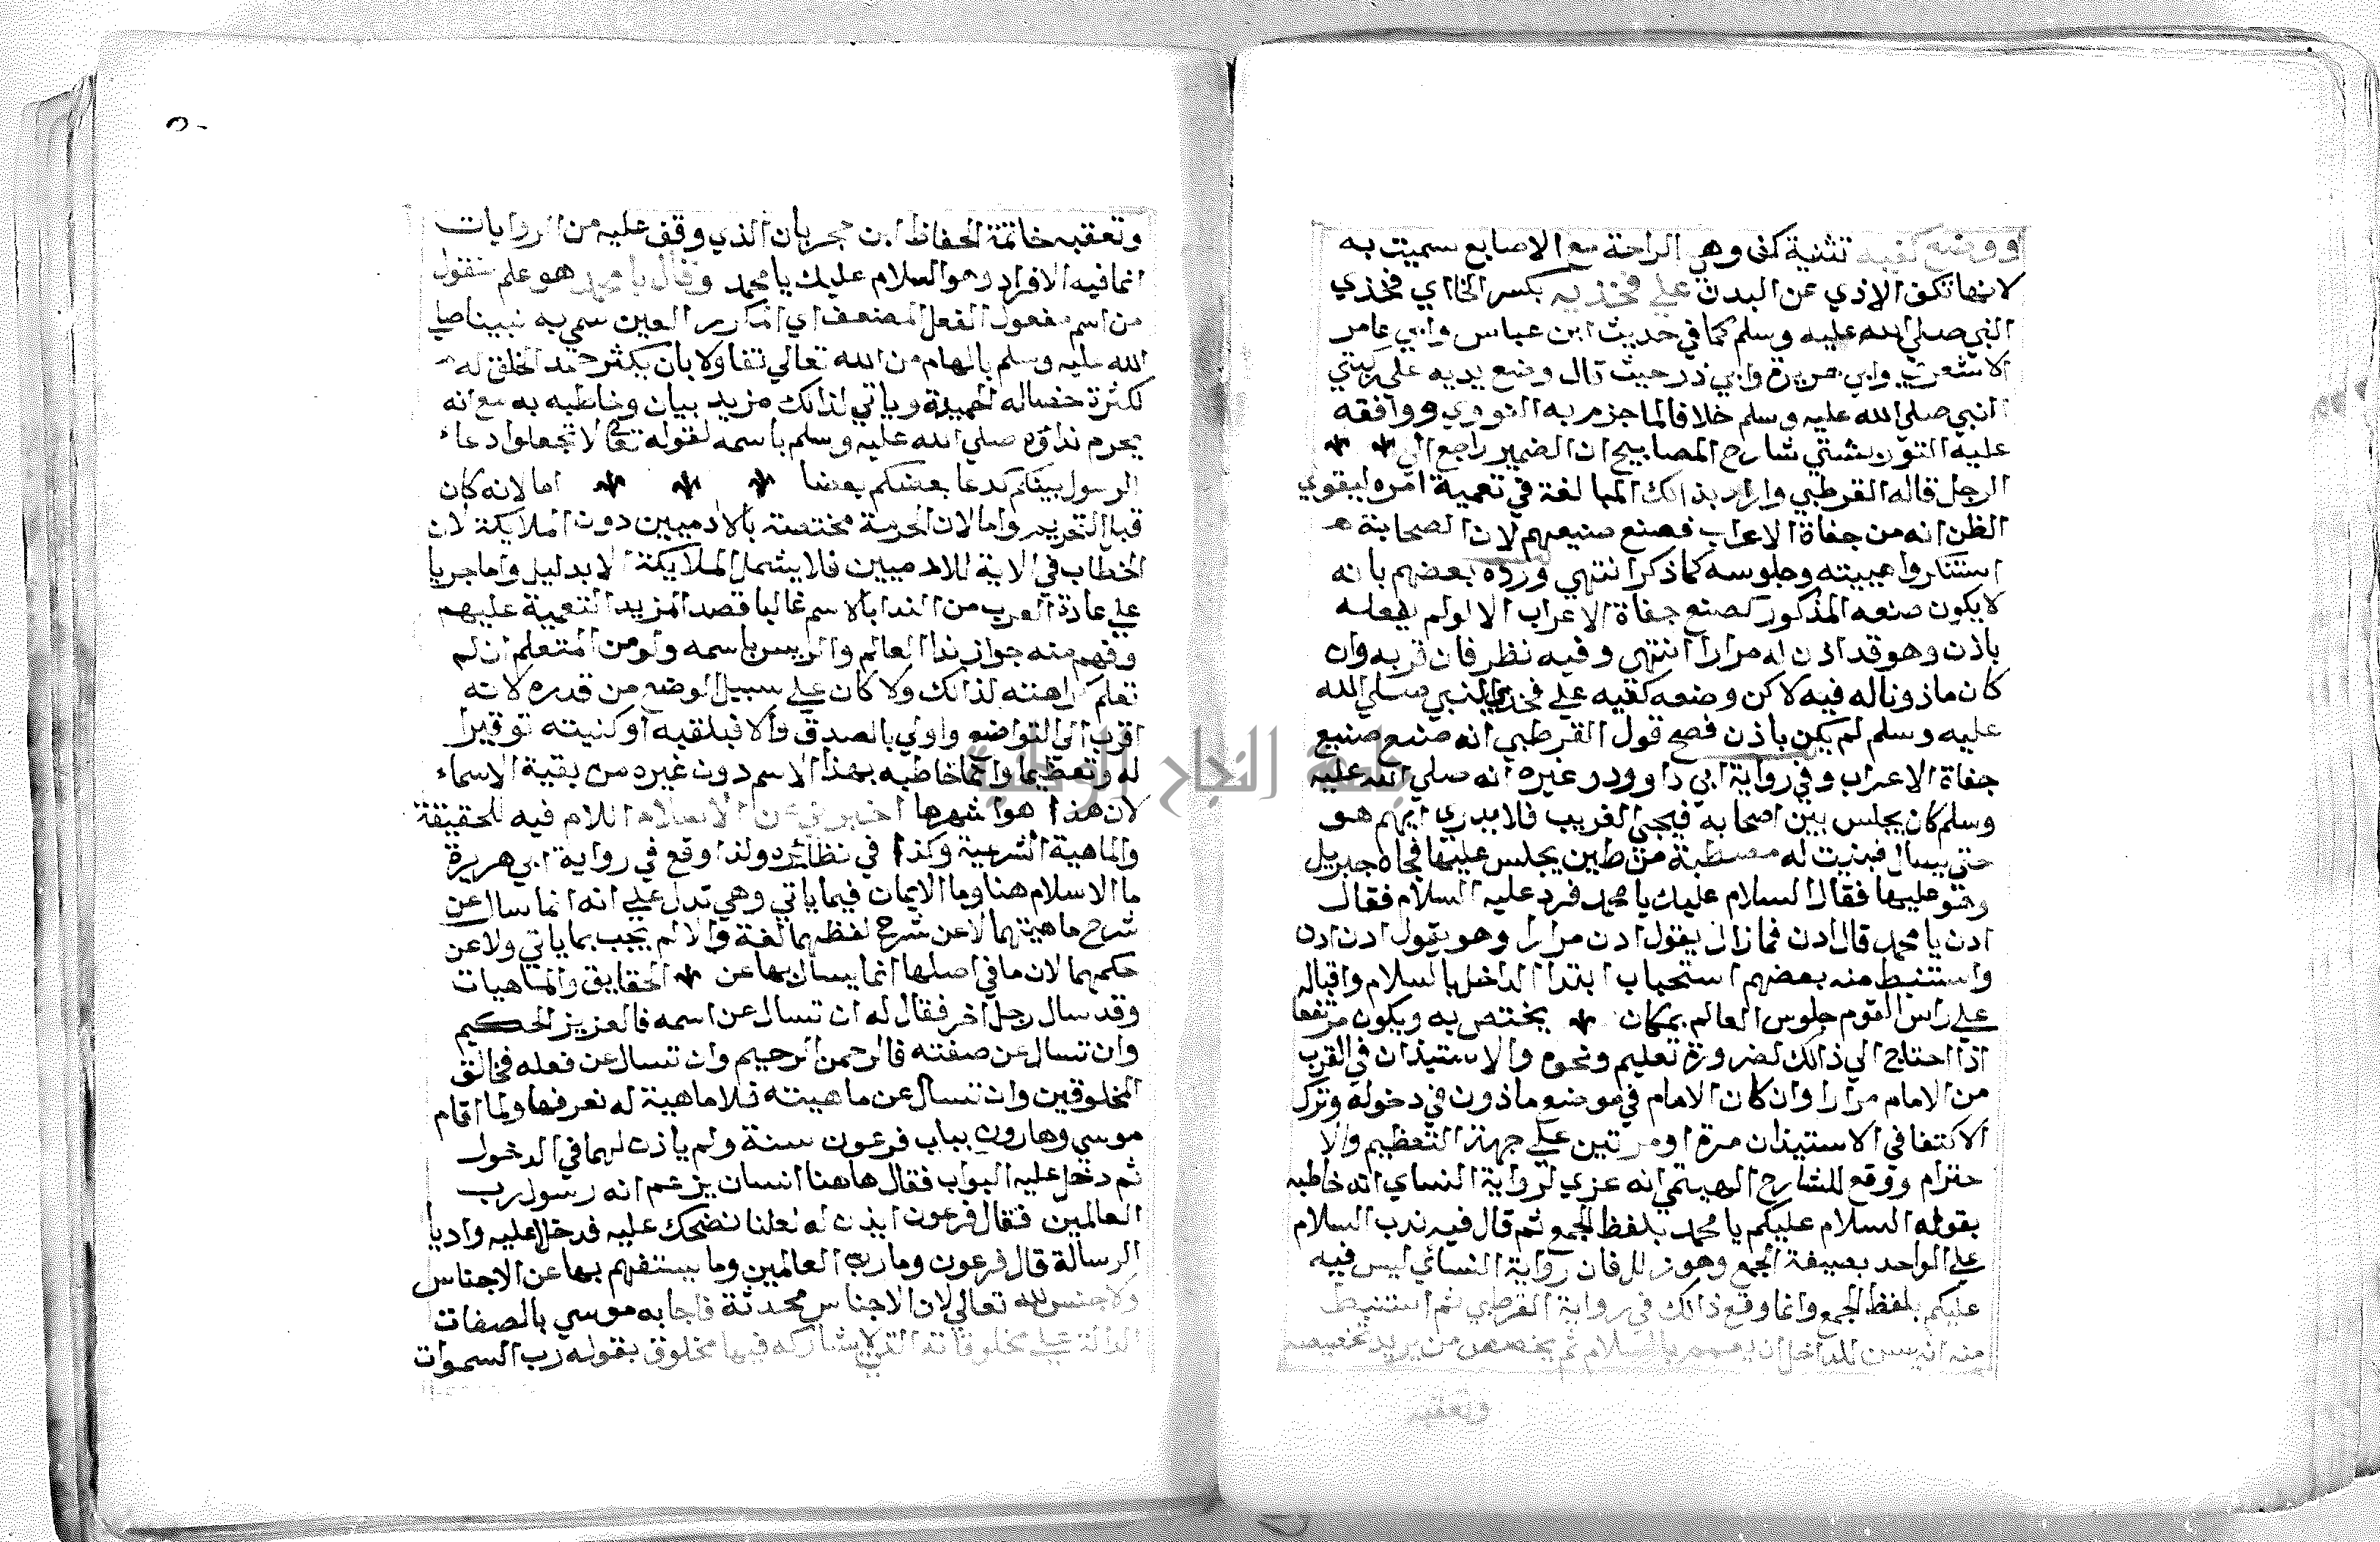 ووضع كفيه تثنية كف وهي الراحة مع الاصابع سميت به
لانها تكف الاذي عن البدن علي فخذيه بكسر الخا اي فخذي
النبي صلي الله عليه وسلم كما في حديث ابن عباس وابي عامر
الاشعري وابي هريرة وابي ذر حيث قال وضع يديه علي ركبتي
النبي صلي الله عليه وسلم خلافا لما جزم به النووي ووافقه
عليه التوربشتي شارح المصابيح ان الضمير راجع الي
الرجل قاله القرطبي واراد بذالك المبالغة في تعمية امره ليقوي
الظن انه من جفاة الاعراب فصنع صنيعهم لان الصحابة
استنكروا هيبيته وجلوسه كما ذكر انتهي ورده بعضهم بانه
لا يكون صنعه المذكور لصنع جفاة الاعراب الا لو لم يفعله
باذن وهو قد اذن له مرارا انتهي وفيه نظر فان قربه وان
كان ماذونا له فيه لاكن وضعه كفيه علي فخذي النبي صلي الله
عليه وسلم لم يكن باذن فصح قول القرطبي انه صنع صنيع
جفاة الاعراب وفي رواية ابي داوود وغيره انه صلي الله عليه
وسلم كان يجلس بين اصحابه فيجي الغريب فلا يدري ايهم هو
حتي يسال فبنيت له مصطبة من طين يجلس عليها فجاه جبريل
وهو عليها فقال السلام عليك يا محمد فرد عليه السلام فقال
ادن يا محمد قال ادن فما زال يقول ادن مرارا وهو يقول ادن ادن
واستنبط منه بعضهم استحباب ابتدا الداخل بالسلام واقباله
علي راس القوم جلوس العالم بمكان يختص به ويكون مرتفعا
اذا احتاج الي ذالك لضرورة تعليم ونحوه والاستيذان في القرب
من الامام مرارا وان كان الامام في موضع ماذون في دخوله وترك
الاكتفا في الاستيذان مرة او مرتين علي جهة التعظيم والا
حترام ووقع للشارح الهيتمي انه عزي لرواية النساي انه خاطبه
بقوله السلام عليكم يا محمد بلفظ الجمع ثم قال فيه ندب السلام
علي الواحد بصيغة الجمع وهو زلل فان رواية النسائي ليس فيه
عليكم بلفظ الجمع وانما وقع ذالك في رواية القرطبي ثم استنبط
منه انه يسن للداخل ان يعمم بالسلام ثم يخصص من يريد تخصيصه
وتعقبه
وتعقبه خاتمة الحفاظ ابن حجر بان الذي وقف عليه من الروايات
انما فيه الافراد وهو السلام عليك يا محمد وقال يا محمد هو علم منقول
من اسم مفعول الفعل المضعف اي المكرر العين سمي به نبينا صلي
الله عليه وسلم بالهام من الله تعالي تفاولا بان يكثر حمد الخلق له
لكثرة خصاله الحميدة وياتي لذالك مزيد بيان وخاطبه به مع انه
يحرم نداؤه صلي الله عليه وسلم باسمه لقوله تعالي لا تجعلوا دعاء
الرسول بينكم كدعا بعضكم بعضا اما لانه كان
قبل التحريم واما لان الحرمة مختصة بالادميين دون الملايكة لان
الخطاب في الاية للادميين فلا يشمل الملايكة الا بدليل واما جريا
علي عادة العرب من الندا بالاسم غالبا قصد المزيد التعمية عليهم
وفهم منه جواز ندا العالم والريس باسمه ولو من المتعلم ان لم
تعلم كراهته لذالك ولا كان علي سبيل الوضع من قدره لانه
اقرب الي التواضع واولي بالصدق والا فبلقبه او كنيته توقيرا
له وتعظيما وانما خاطبه بهذا الاسم دون غيره من بقية الاسماء
لان هذا هو اشهرها اخبرني عن الاسلام اللام فيه للحقيقة
والماهية الشرعية وكذا في نظائره ولذا وقع في رواية ابي هريرة
ما الاسلام هنا وما الايمان فيما ياتي وهي تدل علي انه انما سال عن
شرح ماهيتهما لا عن شرح لفظهما لغة والا لم يجب بما ياتي ولا عن
حكمهما لان ما في اصلها انما يسال بها عن الحقايق والماهيات
وقد سال رجل اخر فقال له ان تسال عن اسمه فالعزيز الحكيم
وان تسال عن صفته فالرحمن الرحيم وان تسال عن فعله فخالق
المخلوقين وان تسال عن ماهيته فلا ماهية له نعرفها ولما اقام
موسي وهارون بباب فرعون سنة ولم ياذن لهما في الدخول
ثم دخل عليه البواب فقال هاهنا انسان يزعم انه رسول رب
العالمين فقال فرعون ايذن له لعلنا نضحك عليه فدخل عليه واديا
الرسالة قال فرعون وما رب العالمين وما يستفهم بها عن الاجناس
ولا جنس لله تعالي لان الاجناس محدثة فاجابه موسي بالصفات
الدالة علي مخلوقاته التي لا يشاركه فيها مخلوق بقوله رب السموات
جامعة النجاح الوطنية